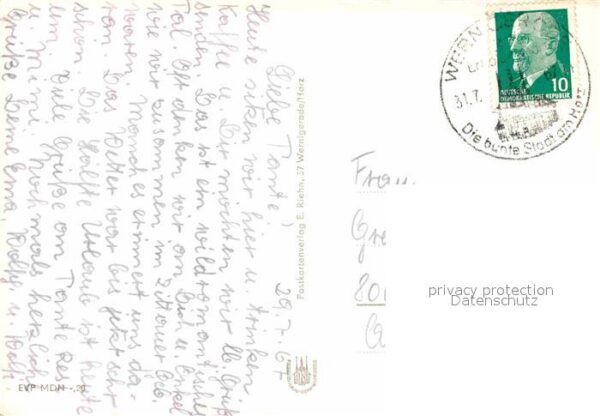 Liebe Tante! 29.7.67
Heute sitzen wir hier u. trinken
Kaffee u. Dir möchten wir lb. Grüße
senden. Das ist ein wildromantisches
Tal. Oft denken wir an Dich u. Onkel
wie wir zusammen im Zittauer Geb.
waren. Manches erinnert uns da-
ran. Das Wetter war bis jetzt sehr
schön. Die Hälfte Urlaub ist heute
um. Viele Grüße an Tante
u. Mimi. Nochmals herzliche
Grüße Deine Erna, u.
Postkartenverlag E. Riehn, 37 Wernigerode/Harz
EVP MDN -,20
WERNIGERODE
31.7.
Die bunte Stadt am Harz
DEUTSCHE
DEMOKRATISCHE REPUBLIK
10
Frau
Gre
801
privacy protection
Datenschutz